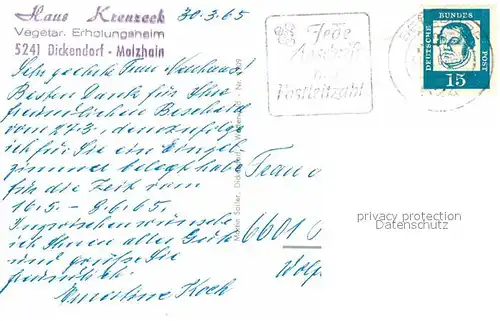 Haus Kreuzeck
Vegetar. Erholungsheim
5241 Dickendorf - Malzhain
30.3.65
Jede
Anschrift
mit
Postleitzahl
DEUTSCHE BUNDESPOST
15
Sehr geehrte Frau
Besten Dank für Ihre
freundlichen Bescheid
vom 27.3., demzufolge
ich für Sie ein Einzel
zimmer belegt habe
für die Zeit vom
16.5. - 8.6.65.
Inzwischen wünsche
ich Ihnen alles Gute
und grüße Sie
freundlich.
Koch
Frau
6601
privacy protection
Datenschutz